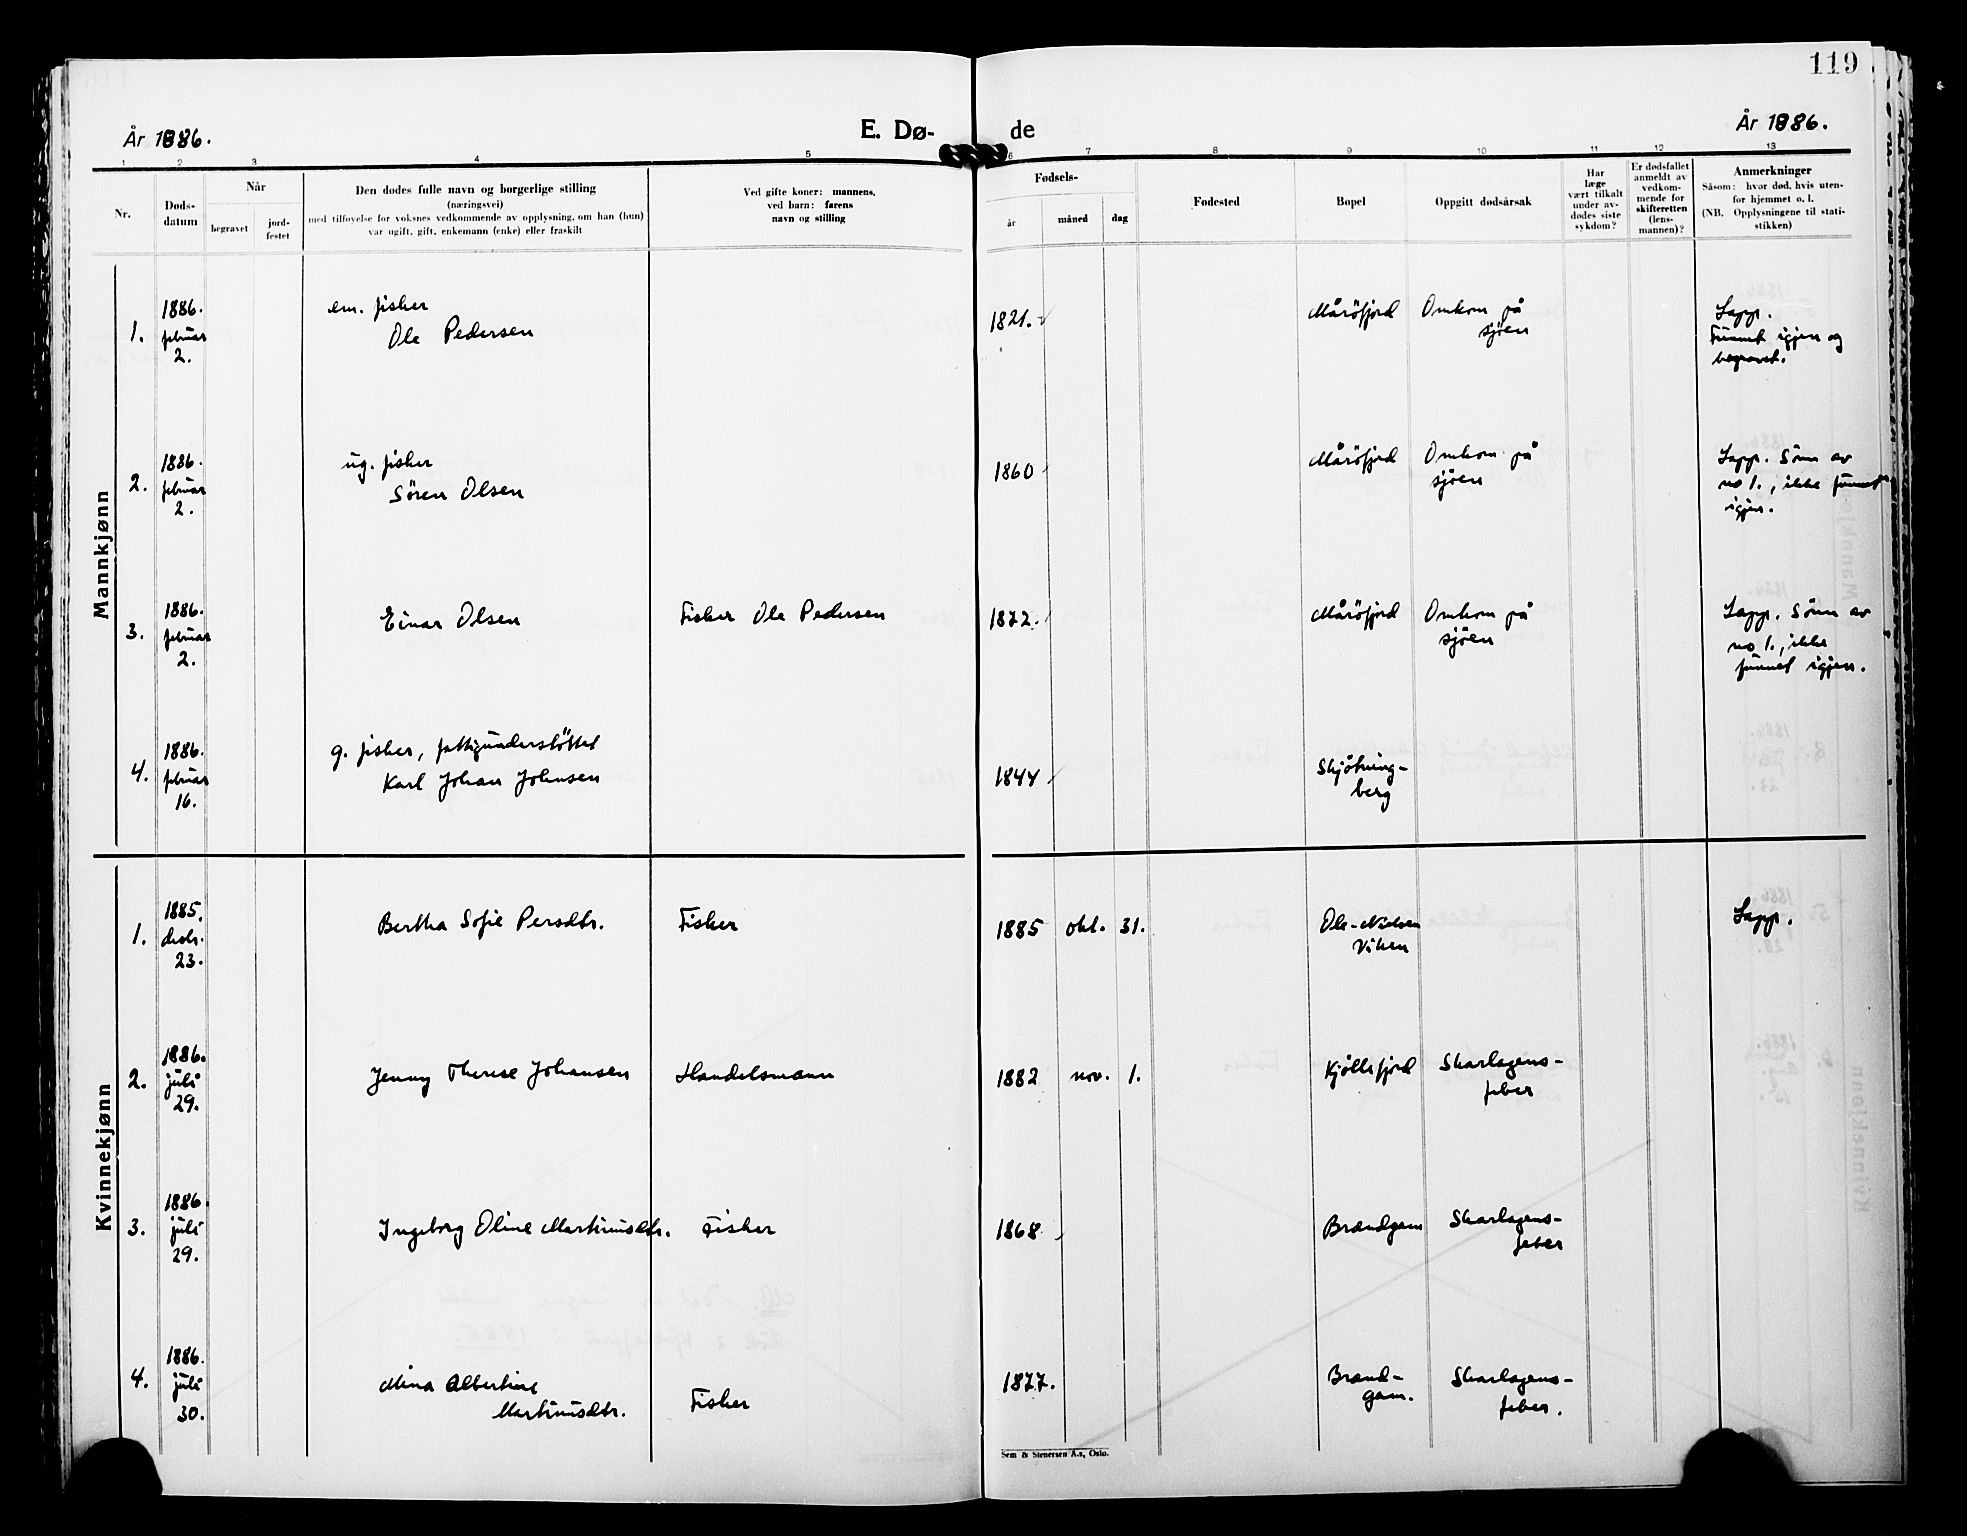 119
År 1886.
E. Dø-
de
År 1886.
1 2 3 4 5 6 7 8 9 10 11 12 13
Nr.
Døds-
datum
Når
begravet
jord-
festet
Den dødes fulle navn og borgerlige stilling
(næringsvei)
med tilføyelse for voksnes vedkommende av opplysning, om han (hun)
var ugift, gift, enkemann (enke) eller fraskilt
Ved gifte koner: mannens,
ved barn: farens
navn og stilling
Fødsels-
år
måned
dag
Fødested
Bopel
Oppgitt dødsårsak
Har
læge
vært tilkalt
under av-
dødes siste
sykdom?
Er dødsfallet
anmeldt av
vedkom-
mende for
skifteretten
(lens-
mannen)?
Anmerkninger
Såsom: hvor død, hvis uten-
for hjemmet o. l.
(NB. Opplysningene til stati-
stikken)
Mannkjønn
1.
1886.
februar
2.
em. fisker
Ole Pedersen
1821.
Måröfjord
Omkom på
sjöen
Lapp.
Funnet igjen og
begravet.
2.
1886.
februar
2.
ug. fisker
Sören Olsen
1860
Måröfjord
Omkom på
sjöen
Lapp. Sönn av
no 1., ikke funnet
igjen.
3.
1886.
februar
2.
Einar Olsen
Fisker Ole Pedersen
1872.
Måröfjord
Omkom på
sjöen
Lapp. Sönn av
no 1., ikke
funnet igjen.
4.
1886.
februar
16.
g. fisker, fattigunderstöttet
Karl Johan Johnsen
1844
Skjötning-
berg
Kvinnekjønn
1.
1885.
desbr.
23.
Bertha Sofie Persdtr.
Fisker
1885 okt. 31.
Ole-Nielsen
Viken
Lapp.
2.
1886.
juli
29.
Jenny Therese Johansen
Handelsmann
1882 nov. 1.
Kjöllefjord
Skarlagens-
feber
3.
1886.
juli
29.
Ingeborg Oline Martinusdtr.
Fisker
1868
Brandgam
Skarlagens-
feber
4.
1886.
juli
30.
Mina Albertine
Martinusdtr.
Fisker
1877.
Brand-
gam.
Skarlagens-
feber.
Sem & Stenersen A.s, Oslo.